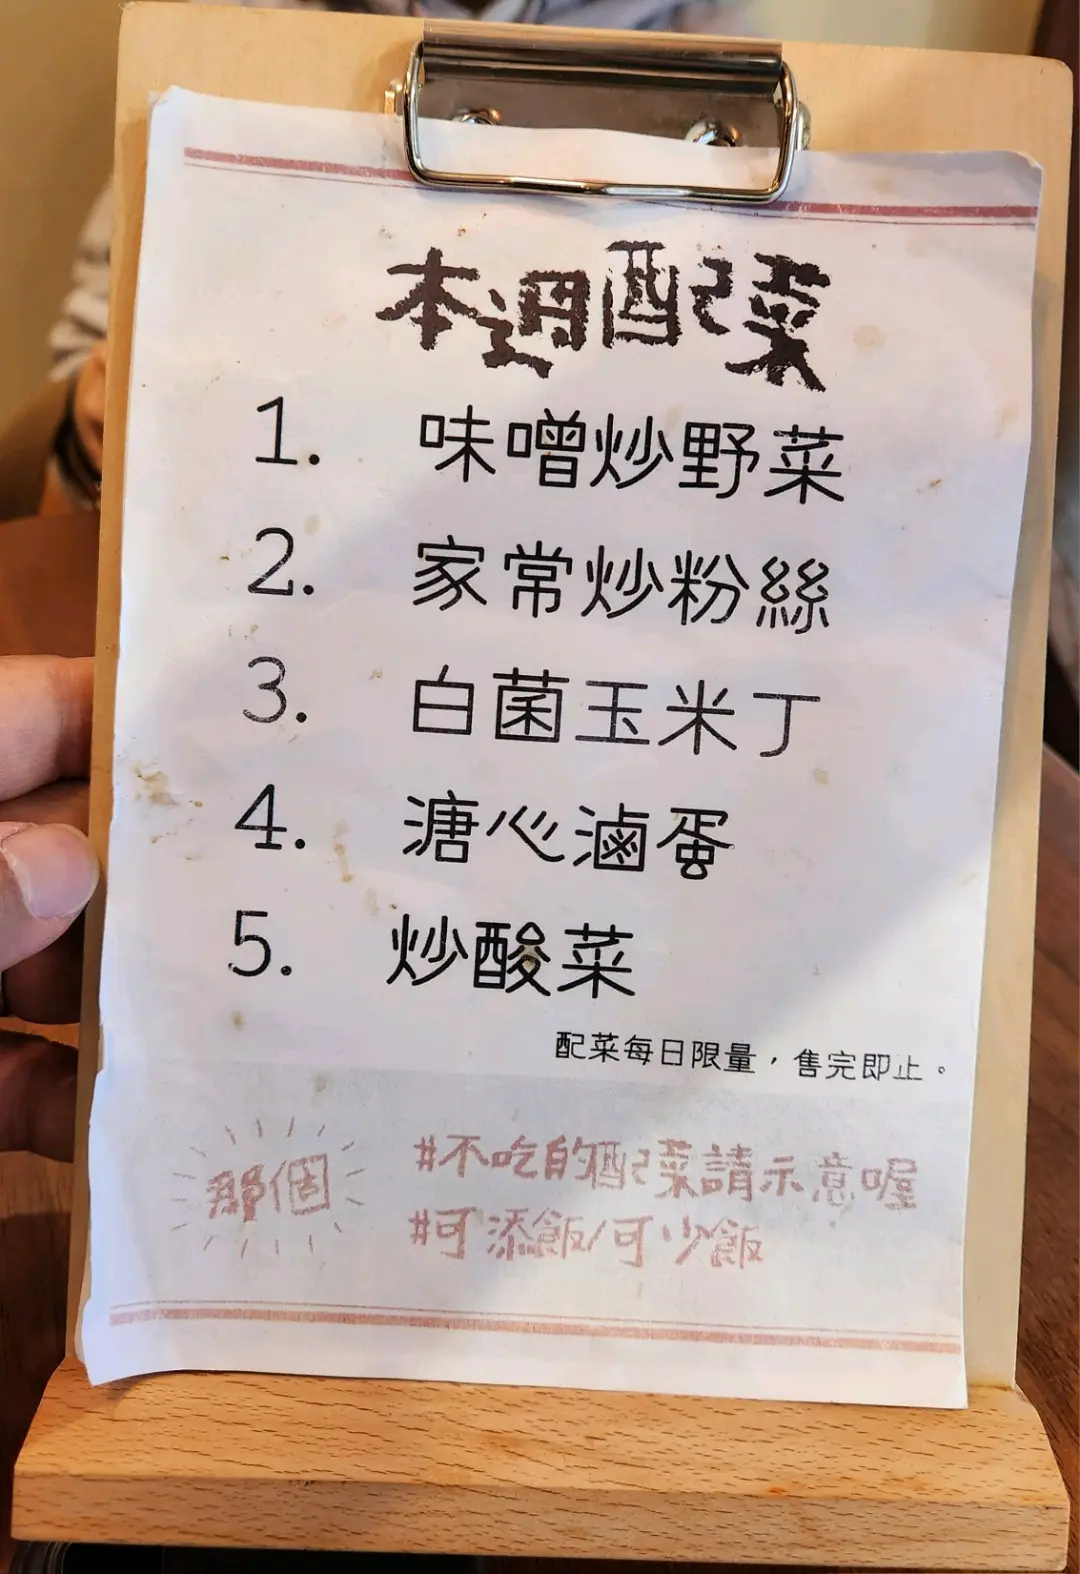 本週配菜
1. 味噌炒野菜
2. 家常炒粉絲
3. 白菌玉米丁
4. 溏心滷蛋
5. 炒酸菜
配菜每日限量，售完即止。
那個
#不吃的配菜請示意喔
#可添飯/可少飯